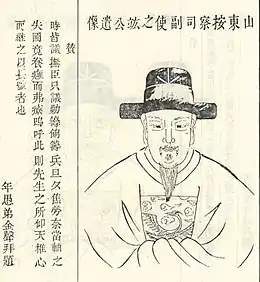 山東按察司副使之紘公遺像
贊
時皆議撫臣只議勦籌餉籌兵旦夕焦勞奈當軸之
失國竟養癰而弗療嗚呼此則先生之所仰天椎心
而繼之以長號者也
年愚弟金聲拜題